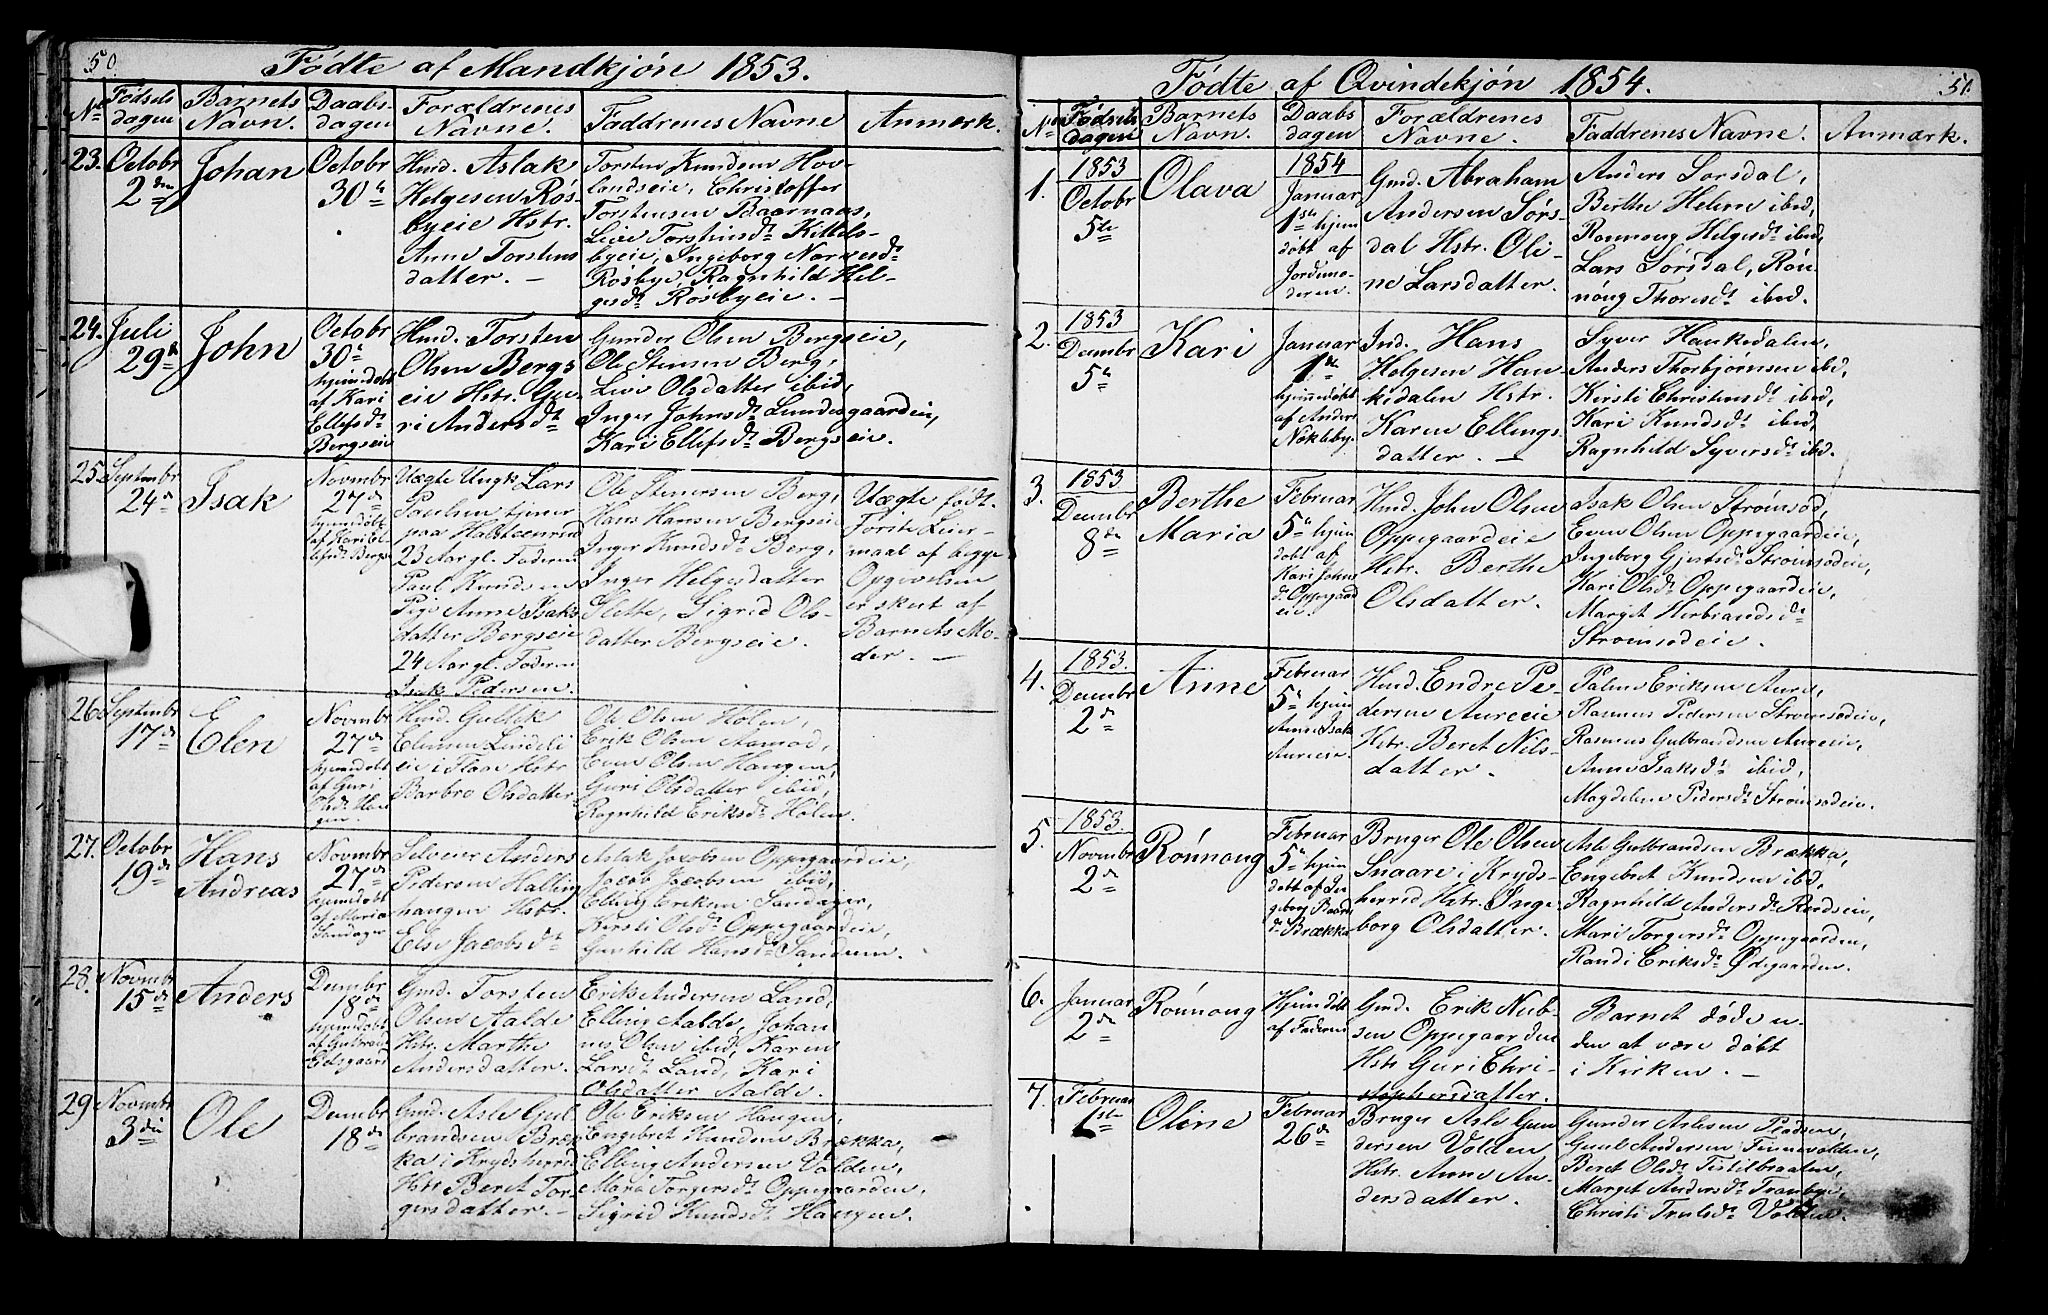 50.
Fødte af Mandkjøn 1853.
No
Fødsels
dagen
Barnets
Navn.
Daabs
dagen
Forældrenes
Navne.
Faddrenes Navne
Anmærk.
23.
Octobr
2den
Johan
Octobr
30te
Huusmd. Aslak
Helgesen Røs-
byeie Hstr.
Anne Torstens
datter. —
Torsten Knudsen Hov-
landseie, Christoffer
Torstensen Baarnaas,
Live Torstensdt Kittels-
byeie, Ingeborg Narvesdt
Røsbye, Ragnhild Hel-
gesdt Røsbyeie. —
24.
Juli
29de
John
Octobr
30te
hjemdøbt
af Kari
Ellefsdt
Bergseie
Huusmd. Torsten
Olsen Bergs
eie Hstr. Gu-
ri Andersdt
Gunder Olsen Bergseie,
Ole Stensen Berg,
Live Olsdatter ibid,
Inger Johnsdt Lundesgaardeie,
Kari Ellefsdt Bergseie.
25.
Septembr
24de
Isak
Novembr
27de
hjemdøbt
af Kari El-
lefsdt Bergs
Uægte Ungk. Lars
Paulsen tjener
paa Halsteenrud
23 Aar gl. Faderen
Paul Knudsen
Pige Anne Isaks
datter Bergseie
24 Aar gl. Faderen
Isak Pedersen.
Ole Stenersen Berg,
Hans Hansen Bergseie
Inger Knudsdt Berg,
Inger Helgesdatter
Slette, Sigrid Ols-
datter Bergseie.
Uægte født.
Første Leier-
maal af begge
Opgivelsen
er skeet af
Barnets Mo-
der. —
26.
Septembr
17de
Elen
Novembr
27de
hjemdøbt
af Guri
Olsdt Hau
gen
Huusmd. Gullik
Elensen Lindeli
eie i Flaae Hstr
Barbro Olsdatter
Ole Olsen Holen,
Erik Olsen Aamod,
Even Olsen Haugen,
Guri Olsdatter ibid,
Ragnhild Eriksdt Hølen.
27.
Octobr
19de
Hans
Andreas
Novembr
27de
hjemdøbt
af Maria
Sandager
Selveier Anders
Pedersen Halling
haugen Hstr.
Else Jacobsdt
Aslak Jacobsen Oppegaardeie,
Jacob Jacobsen ibid,
Elling Eriksen Sandager,
Kirsti Olsdt Oppegaardeie,
Gunhild Hansdt Sandum.
28.
Novembr
15de
Anders
Decembr
18de
hjemdøbt
af Gulbran
Eidsgaard
Gmd. Torsten
Olsen Aalde
Hstr. Marthe
Andersdatter.
Erik Andersen Land,
Elling Aalde, Johan
nes Olsen ibid, Karen
Larsdt Land, Kari
Olsdatter Aalde.
29
Novembr
3die
Ole
Decembr
18de
Gmd. Asle Gul
brandsen Bræk
ka i Krydsherred
Hstr Beret Tor-
gersdatter. —
Ole Eriksen Haugen,
Engebret Knudsen Brækka,
Elling Andersen Volden,
Maria Torgersdt Oppegaarden,
Sigrid Knudsdt Haugen.
51.
Fødte af Qvindekjøn 1854.
No
Fødsels
dagen
Barnets
Navn.
Daabs
dagen
Forældrenes
Navne.
Faddrenes Navne.
Anmærk.
1.
1853
Octobr
5te
Olava
1854
Januar
1ste hjem
døbt af
Jordemo-
deren.
Gmd. Abraham
Andersen Sørs-
dal Hstr. Oli-
ne Larsdatter.
Anders Sorsdal,
Berthe Helene ibid,
Rønnoug Helgesdt ibid,
Lars Sørsdal, Røn
nøug Thoresdt ibid.
2.
1853
Decembr
5te
Kari
Januar
1ste
hjemmedøbt
af Anders
Nøkleby.
Ind. Hans
Helgesen Hau-
kedalen Hstr.
Karen Ellings
datter. —
Syver Haukedalen,
Anders Thorbjørnsen ibid,
Kirsti Christensdt ibid,
Kari Knudsdt ibid,
Ragnhild Syversdt ibid.
3.
1853
Decembr
8de
Berthe
Maria
Februar
5te hjem
døbt af
Kari Johns
dt Oppegaard
eie.
Huusmd. John Olsen
Oppegaardeie
Hstr. Berthe
Olsdatter.
Isak Olsen Strømsød,
Even Olsen Oppegaardeie,
Ingeborg Gjertsdt Strømsødeie,
Kari Olsdt Oppegaardeie,
Margit Herbrandsdt
Strømsødeie.
4.
1853.
Decembr
2de
Anne
Februar
5te hjem
Anne Isak
Aureeie.
Huusmd. Endre Pe-
dersen Aureeie
Hstr. Beret Nils-
datter.
Palme Eriksen Aure,
Rasmus Pedersen Strømsødeie,
Rasmus Gulbrandsen Aureeie,
Anne Isaksdt ibid,
Magdelene Pedersdt Strømsødeie.
5.
1853.
Novembr
2de
Rønnoug
Februar
5te hjem
døbt af In-
geborg Baards
dt Brækka
Bruger Ole Olsen
Snaare i Kryds-
herrid Hstr. Inge-
borg Olsdatter.
Asle Gulbrandsen Brækka,
Engebret Knudsen ibid,
Ragnhild Andersdt Rudseie,
Mari Torgersdt Oppegaarden,
Randi Eriksdt Ødegaarden.
6.
Januar
2de
Rønnoug
Hjemdøbt
af Faderen
Gmd. Erik Nub-
sen Oppegaarden
Hstr Guri Chri-
stophersdatter.
Barnet døde u-
den at være døbt
i Kirken. —
7.
Februar
1ste
Oline
Februar
26de
Bruger Asle Gun
dersen Volden
Hstr. Anne An-
dersdatter.
Gunder Aslesen Pladsen,
Guul Andersen Finnevolden,
Beret Olsdt Tistilbraaten,
Margit Andersdt Tranbye,
Christi Trulsdt Volden.